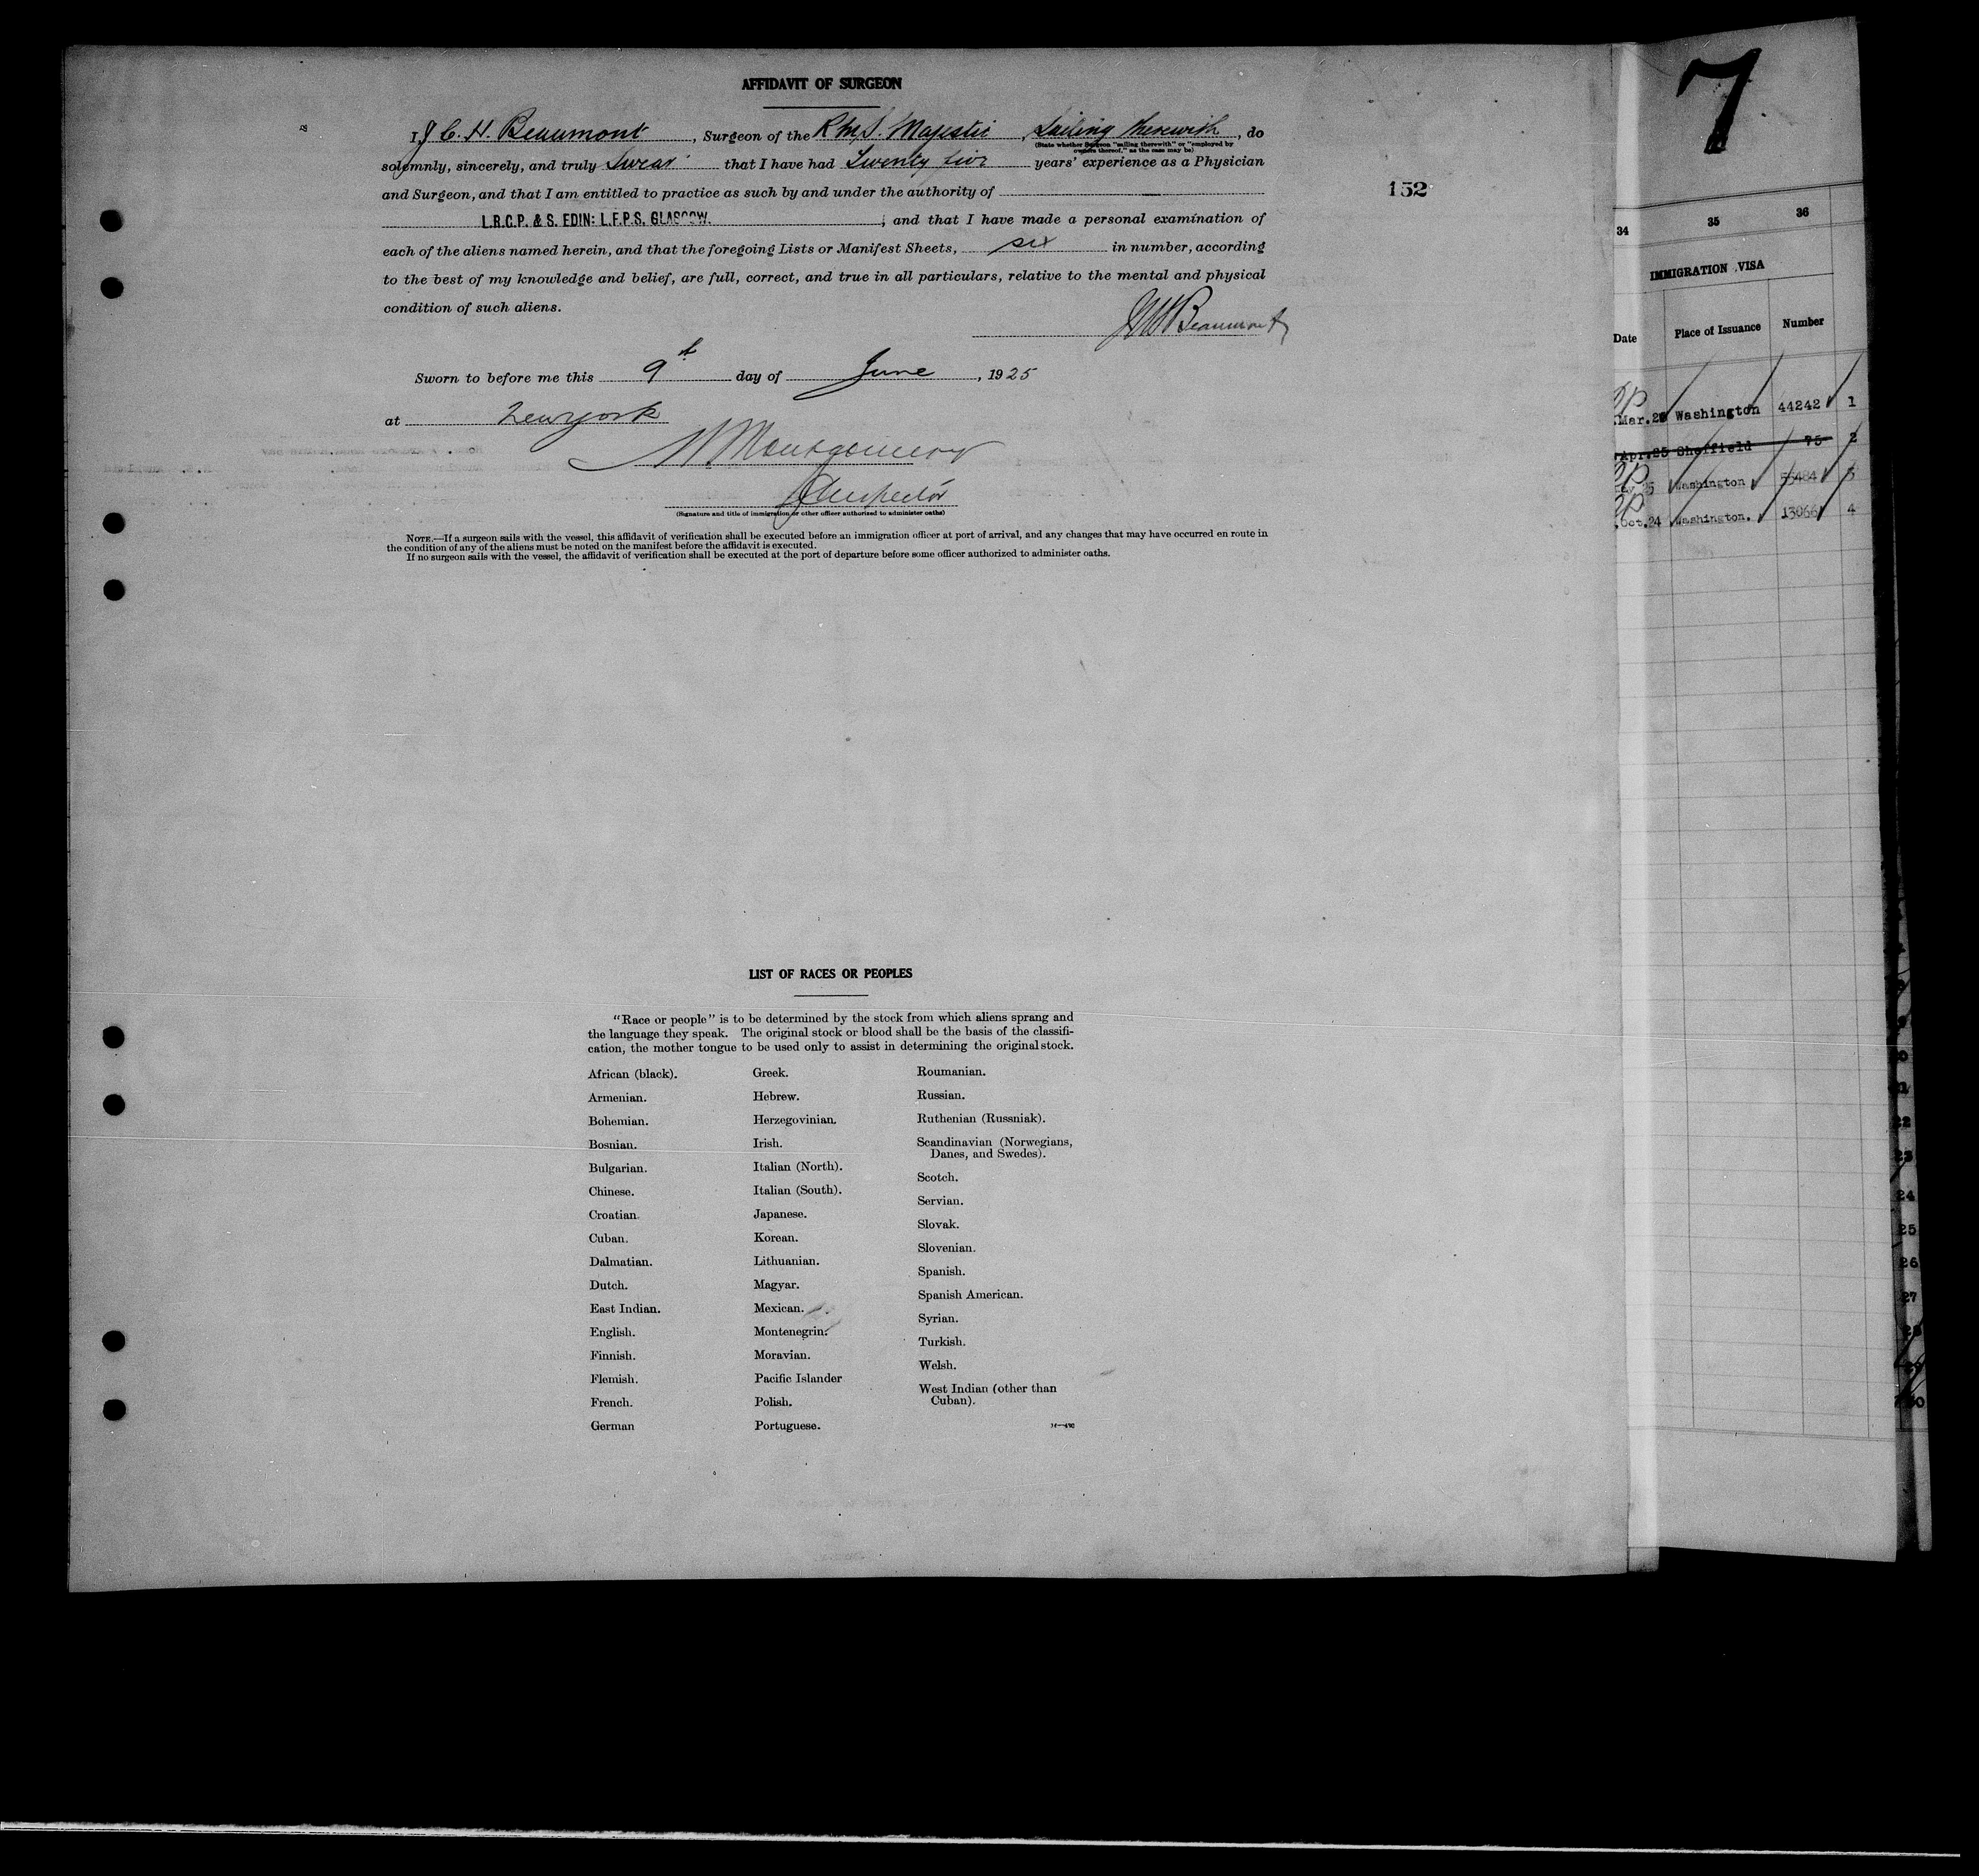 AFFIDAVIT OF SURGEON
I, J. C. H. Beaumont, Surgeon of the R.M.S. Majestic, Sailing therewith, do
(State whether Surgeon "sailing therewith" or "employed by
owners thereof," as the case may be)
solemnly, sincerely, and truly Swear that I have had Twenty five years' experience as a Physician
and Surgeon, and that I am entitled to practice as such by and under the authority of
L.R.C.P. & S. EDIN: L.F.P.S. GLASGOW. ; and that I have made a personal examination of
each of the aliens named herein, and that the foregoing Lists or Manifest Sheets, six in number, according
to the best of my knowledge and belief, are full, correct, and true in all particulars, relative to the mental and physical
condition of such aliens.
JCH Beaumont
Sworn to before me this 9th day of June, 1925
at New York
Montgomery
Inspector
(Signature and title of immigration or other officer authorized to administer oaths)
NOTE.—If a surgeon sails with the vessel, this affidavit of verification shall be executed before an immigration officer at port of arrival, and any changes that may have occurred en route in
the condition of any of the aliens must be noted on the manifest before the affidavit is executed.
If no surgeon sails with the vessel, the affidavit of verification shall be executed at the port of departure before some officer authorized to administer oaths.
152
LIST OF RACES OR PEOPLES
"Race or people" is to be determined by the stock from which aliens sprang and
the language they speak. The original stock or blood shall be the basis of the classifi-
cation, the mother tongue to be used only to assist in determining the original stock.
African (black).
Armenian.
Bohemian.
Bosnian.
Bulgarian.
Chinese.
Croatian.
Cuban.
Dalmatian.
Dutch.
East Indian.
English.
Finnish.
Flemish.
French.
German
Greek.
Hebrew.
Herzegovinian.
Irish.
Italian (North).
Italian (South).
Japanese.
Korean.
Lithuanian.
Magyar.
Mexican.
Montenegrin.
Moravian.
Pacific Islander
Polish.
Portuguese.
Roumanian.
Russian.
Ruthenian (Russniak).
Scandinavian (Norwegians,
Danes, and Swedes).
Scotch.
Servian.
Slovak.
Slovenian.
Spanish.
Spanish American.
Syrian.
Turkish.
Welsh.
West Indian (other than
Cuban).
7
34 35 36
IMMIGRATION VISA
Date Place of Issuance Number
Mar. Washington 44242 1
Apr.25 Sheffield 75 2
25 Washington 55484 3
Oct.24 Washington. 13066 4
24
25
26
27